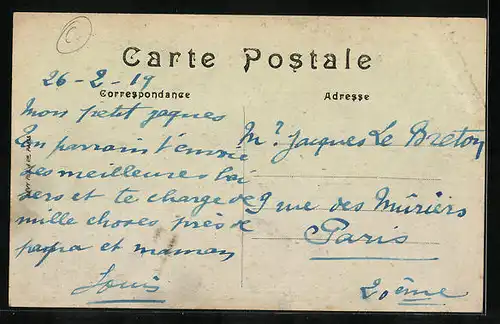 Carte Postale
26-2-19
Correspondance
Mon petit Jacques
Ton parrain t'envoie
ses meilleures bai
sers et te charge de
mille choses près de
papa et maman
Louis
Adresse
Mr Jacques Le Breton
9 rue des Mûriers
Paris
20ème